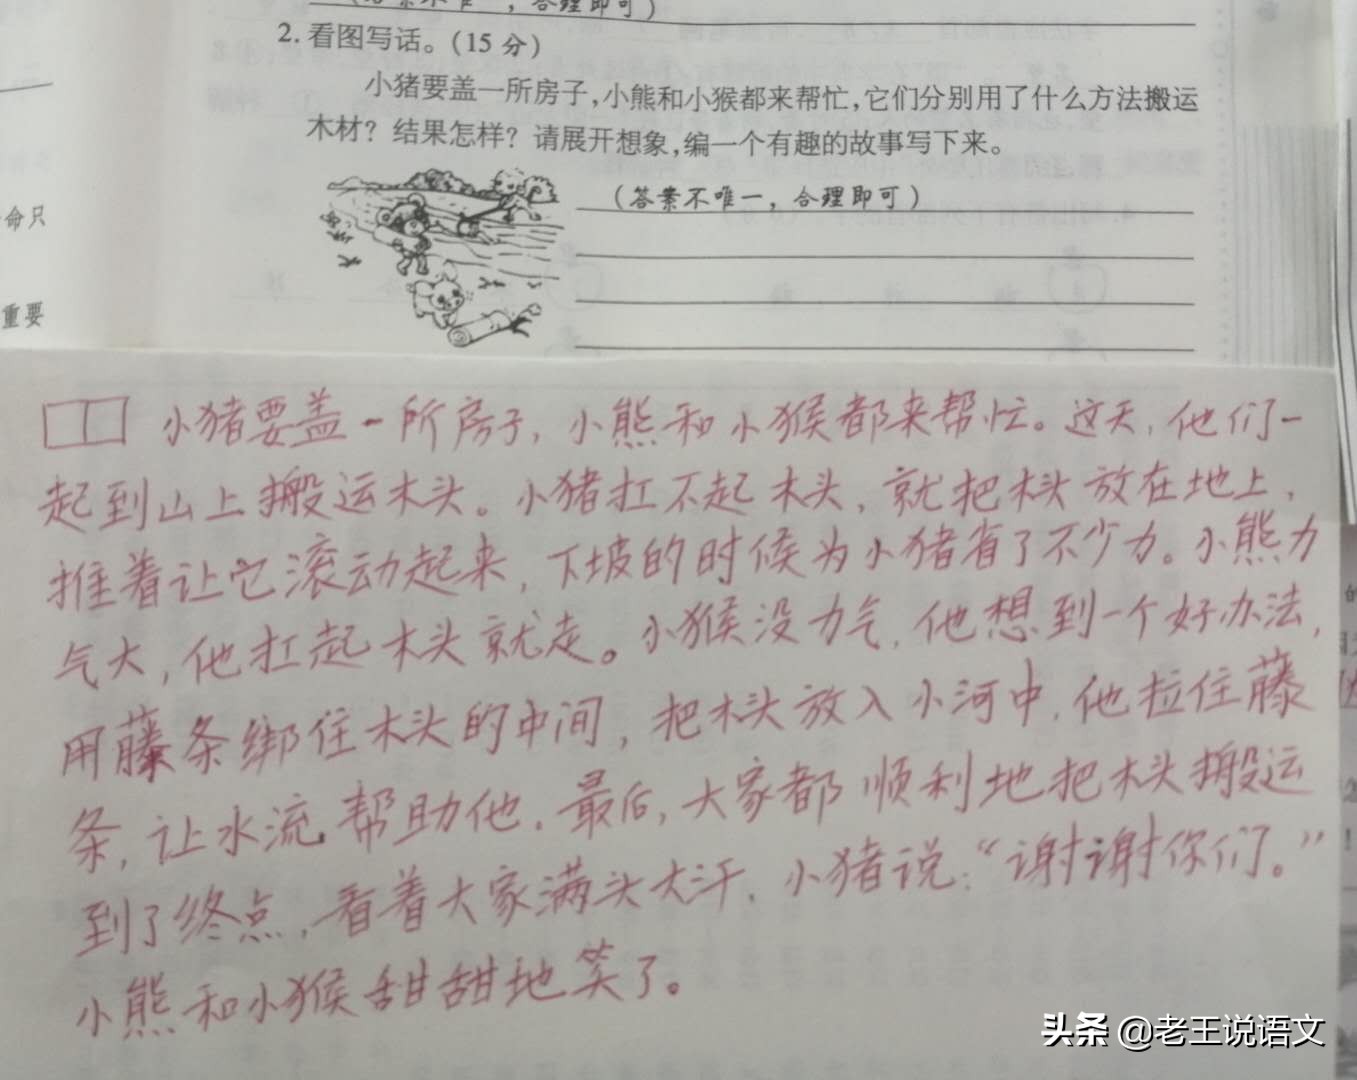 (答案不唯一，合理即可)
2. 看图写话。(15 分)
小猪要盖一所房子,小熊和小猴都来帮忙,它们分别用了什么方法搬运
木材？结果怎样？请展开想象,编一个有趣的故事写下来。
(答案不唯一，合理即可)
命只
重要
小猪要盖一所房子，小熊和小猴都来帮忙。这天，他们一
起到山上搬运木头。小猪扛不起木头，就把木头放在地上，
推着让它滚动起来，下坡的时候为小猪省了不少力。小熊力
气大，他扛起木头就走。小猴没力气，他想到一个好办法，
用藤条绑住木头的中间，把木头放入小河中，他拉住藤
条，让水流帮助他。最后，大家都顺利地把木头搬运
到了终点，看着大家满头大汗，小猪说：“谢谢你们。”
小熊和小猴甜甜地笑了。
头条 @老王说语文